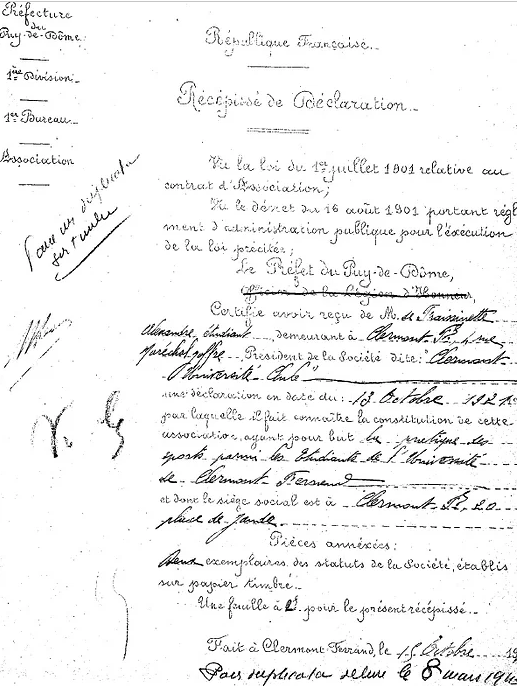 Préfecture
du
Puy-de-Dôme.
1ère Division
1er Bureau
Association
Pour un duplicata
République Française
Récépissé de Déclaration
Vu la loi du 1er juillet 1901 relative au
contrat d'Association;
Vu le décret du 16 août 1901 portant règle
ment d'administration publique pour l'exécution
de la loi précitée;
Le Préfet du Puy-de-Dôme,
Officier de la Légion d'Honneur,
Certifie avoir reçu de M. de Fraissinette
Alexandre, étudiant, demeurant à Clermont-Fd, 4 rue
Maréchal Joffre, Président de la Société dite: "Clermont
Université Club"
une déclaration en date du: 13 Octobre 1921
par laquelle il fait connaître la constitution de cette
association, ayant pour but la pratique des
sports parmi les Etudiants de l'Université
de Clermont Ferrand
et dont le siège social est à Clermont-Fd, 20
place de Jaude.
Pièces annexées:
Deux exemplaires des statuts de la Société, établis
sur papier timbré.
Une feuille à 2f pour le présent récépissé.
Fait à Clermont Ferrand, le 15 Octobre 19
Pour duplicata délivré le 8 mars